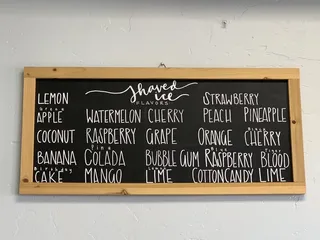 Shaved
ice
FLAVORS
LEMON STRAWBERRY
green
APPLE WATERMELON CHERRY PEACH PINEAPPLE
COCONUT RASPBERRY GRAPE ORANGE Black CHERRY
BANANA Pina COLADA BUBBLE GUM Blue RASPBERRY Tiger BLOOD
Birthday
CAKE MANGO Mango LIME COTTON CANDY LIME